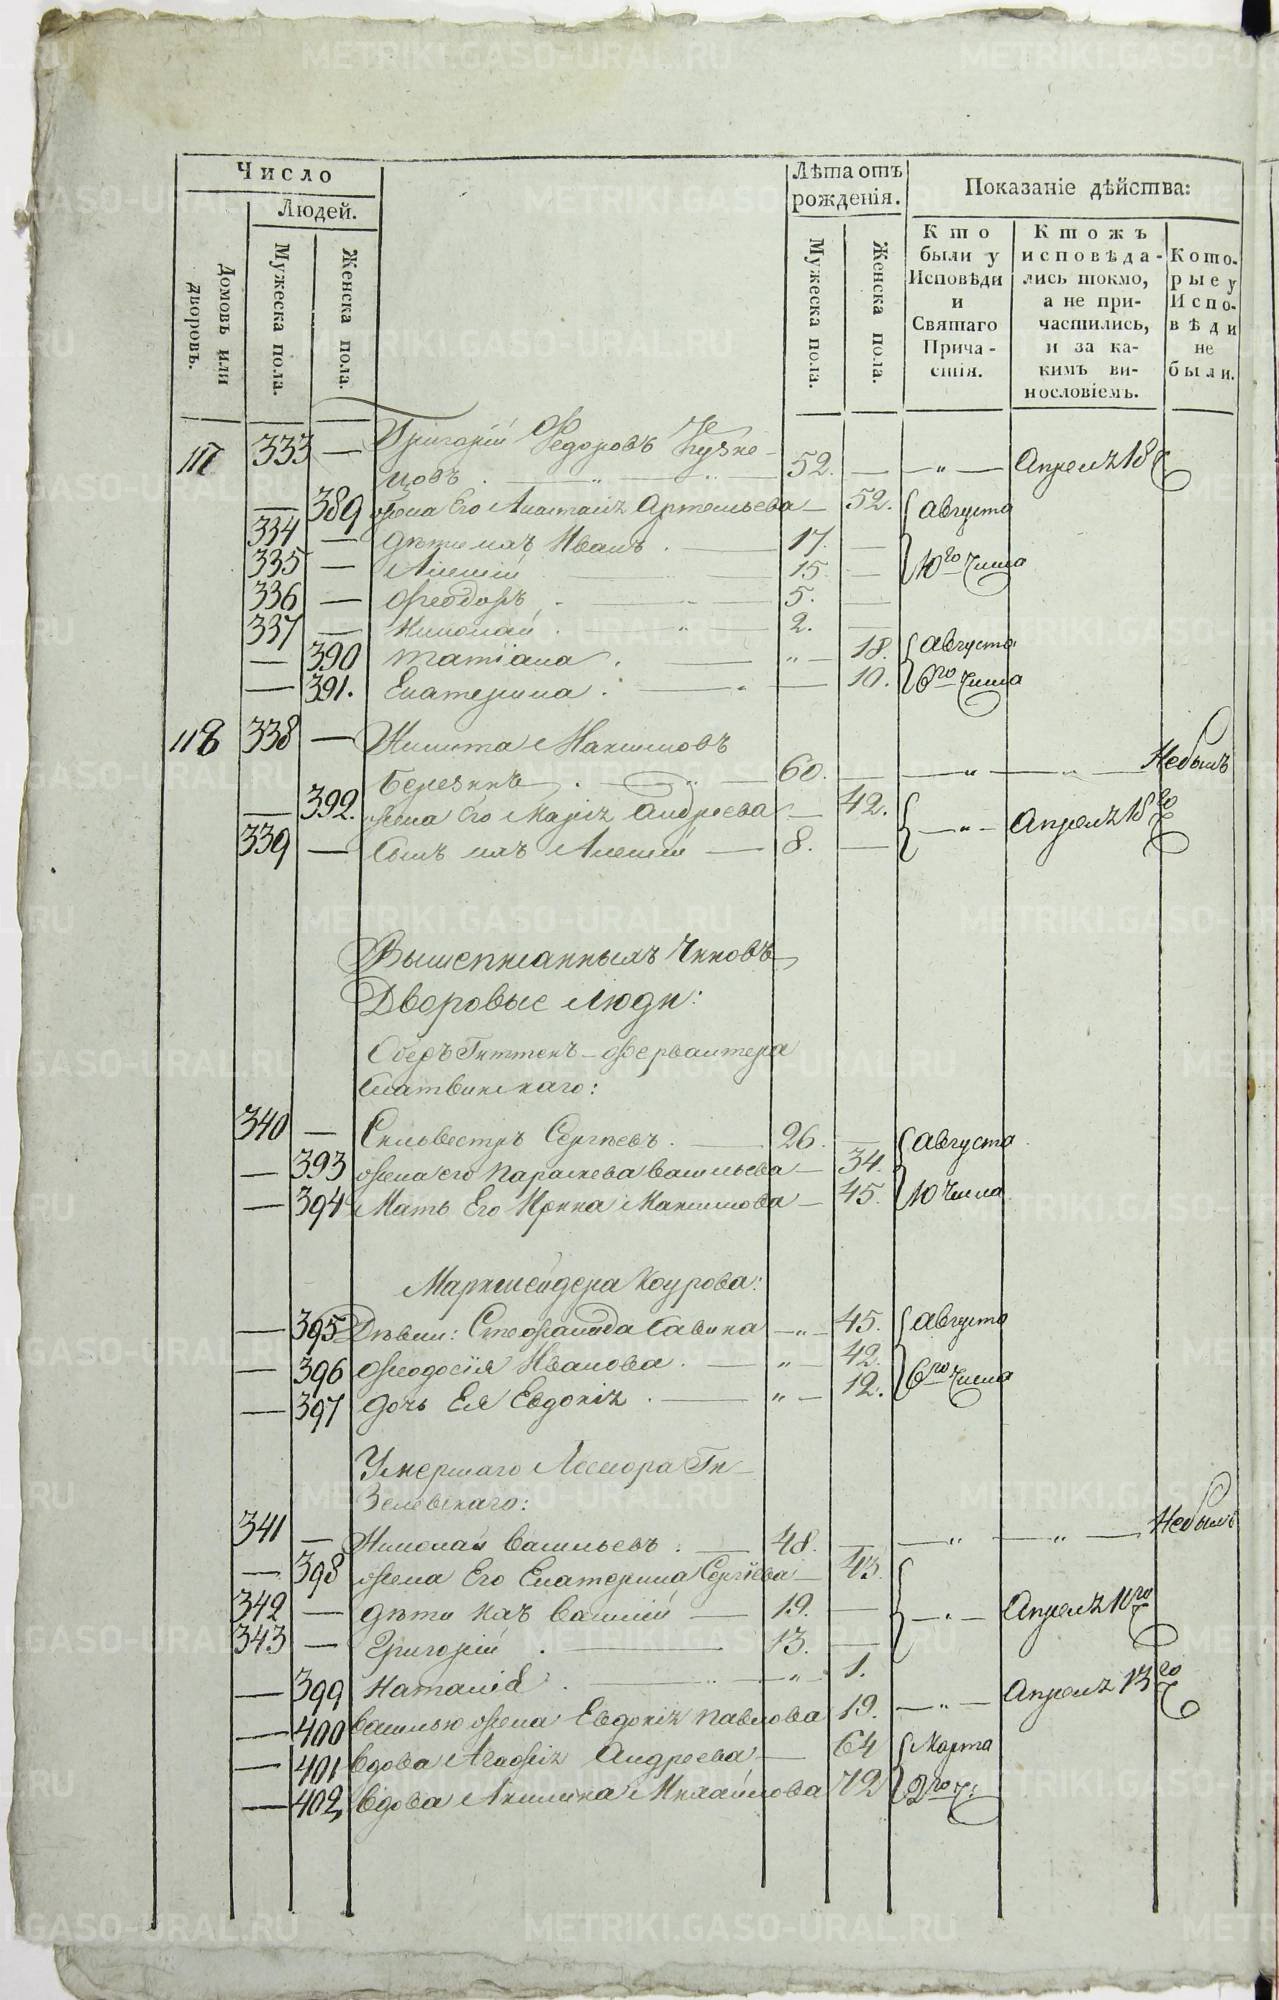 Число
Людей.
Домовъ или дворовъ.
Мужеска пола.
Женска пола.
Лѣта отъ рожденія.
Мужеска пола.
Женска пола.
Показаніе дѣйства:
Кто были у Исповѣди и Святаго Причастія.
Ктожъ исповѣдались токмо, а не причастились, и за какимъ винословіемъ.
Которые у Исповѣди не были.
117 333 — Григорій Ѳедоровъ Кузне-
цовъ 52. — — „ — Апреля 18
— 389 жена Его Анастасія Артемьева — 52. Августа
334 — дѣти ихъ Иванъ . — 17. —
335 — Алексій 15 — 10го числа
336 — Ѳеодоръ . — 5. —
337 — Николай . — „ — 2. —
— 390 Татіана . — „ — 18. Августа
— 391. Екатерина . — „ — 10. 6го числа
118 338 — Никита Максимовъ
Березинъ . — „ — 60. — — „ — „ — Небылъ
— 392. жена Его Марія Андреева — 42.
— „ — Апреля 18го
339 — Сынъ ихъ Алексій — 8. —
Вышеписанныхъ Чиновъ
Дворовые люди:
Оберъ Гиттенъ-Ферваитера
Слатвинскаго:
340 — Сильвестръ Сергѣевъ . — 26. — Августа
— 393 жена его Параскева Васильева — 34.
— 394 Мать Его Ирина Максимова — 45. 10 числа
Маркшейдера Коурова:
— 395 Дѣвки: Стефанида Савина — „ — 45. Августа
— 396 Ѳеодосія Иванова . — „ — 42. 6го числа
— 397 дочь Ея Евдокія . — „ — 12.
Умершаго Ассесора Ги-
Зелевскаго:
341 — Николай Васильевъ . — 48. — — „ — „ — Небылъ
— 398 жена Его Екатерина Сергіева — 43.
342 — дѣти ихъ Василій — 19. — — „ — Апреля 10го
343 — Григорій . — 13. —
— 399 Наталія . — „ — 1.
— 400 Василью жена Евдокія Павлова 19. — „ — Апреля 13го
— 401 вдова Агафія Андреева — 64 Марта
— 402 вдова Акилина Михайлова 72 2го ч:
METRIKI.GASO-URAL.RU